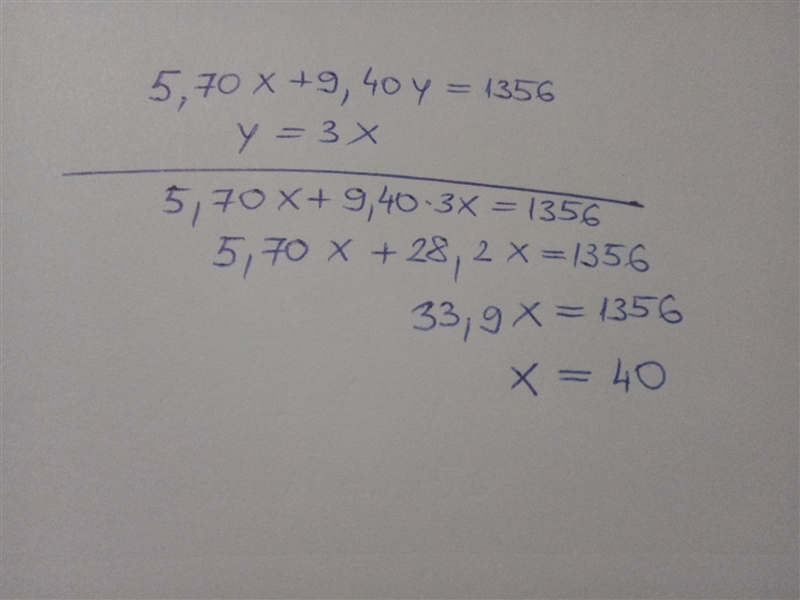 5,70 x + 9,40 y = 1356
y = 3 x
5,70 x + 9,40 · 3x = 1356
5,70 x + 28,2 x = 1356
33,9 x = 1356
x = 40